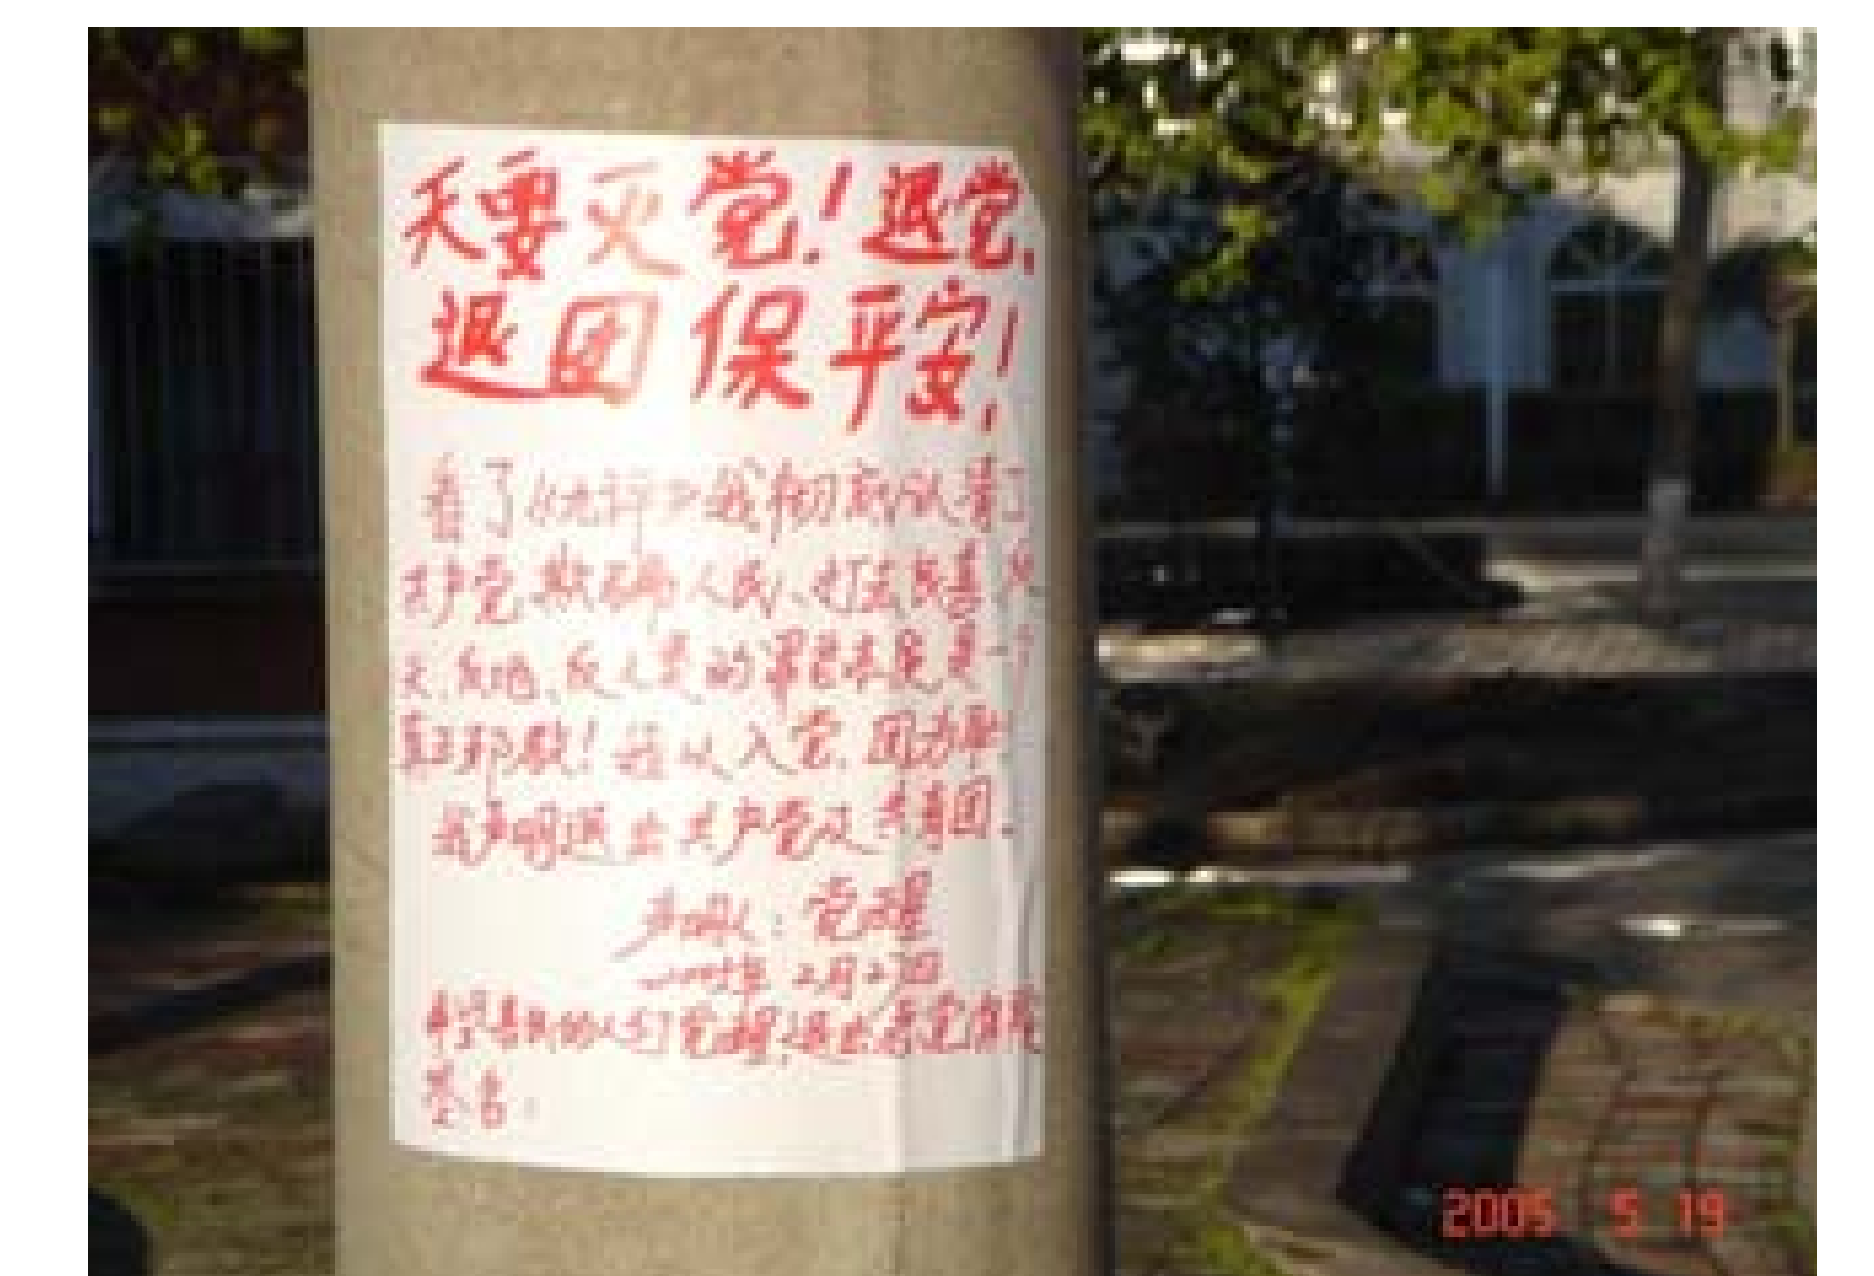 天要灭党！退党、
退团保平安！
看了《九评》我彻底认清了
共产党欺骗人民、打击良善
天、反地、反人类的罪恶本质是一个
真正邪教！我从入党、团
我声明退出共产党及共青团。
声明人：觉醒
二〇〇五年2月27日
的人们觉醒，退出恶党
2005 5 19